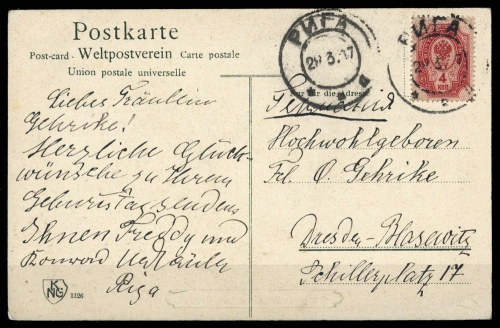 Postkarte
Post-card · Weltpostverein Carte postale
Union postale universelle
РИГА
29 3. 07
РИГА
4
КОП
Nur für die Adresse
Германія
Liebes Fräulein
Gehrike!
Herzliche Glück-
wünsche zu Ihrem
Geburtstag senden
Ihnen Freddy und
Konrad
Riga
Hochwohlgeboren
Frl. O. Gehrike
Dresden-Blasewitz
Schillerplatz 17
KNG 1126